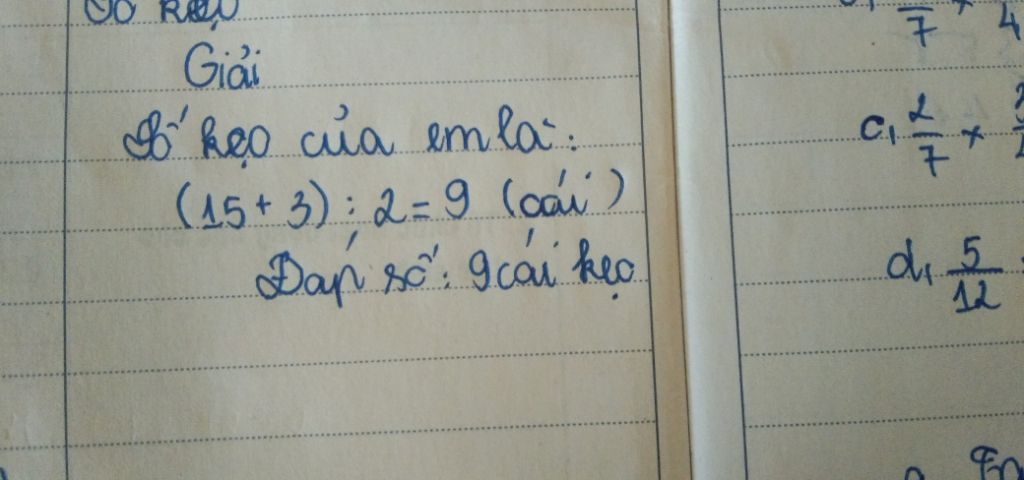 Số kẹo
Giải
Số kẹo của em là:
(15 + 3) : 2 = 9 (cái)
Đáp số: 9 cái kẹo
7 × 4
c, 2/7 ×
d, 5/12